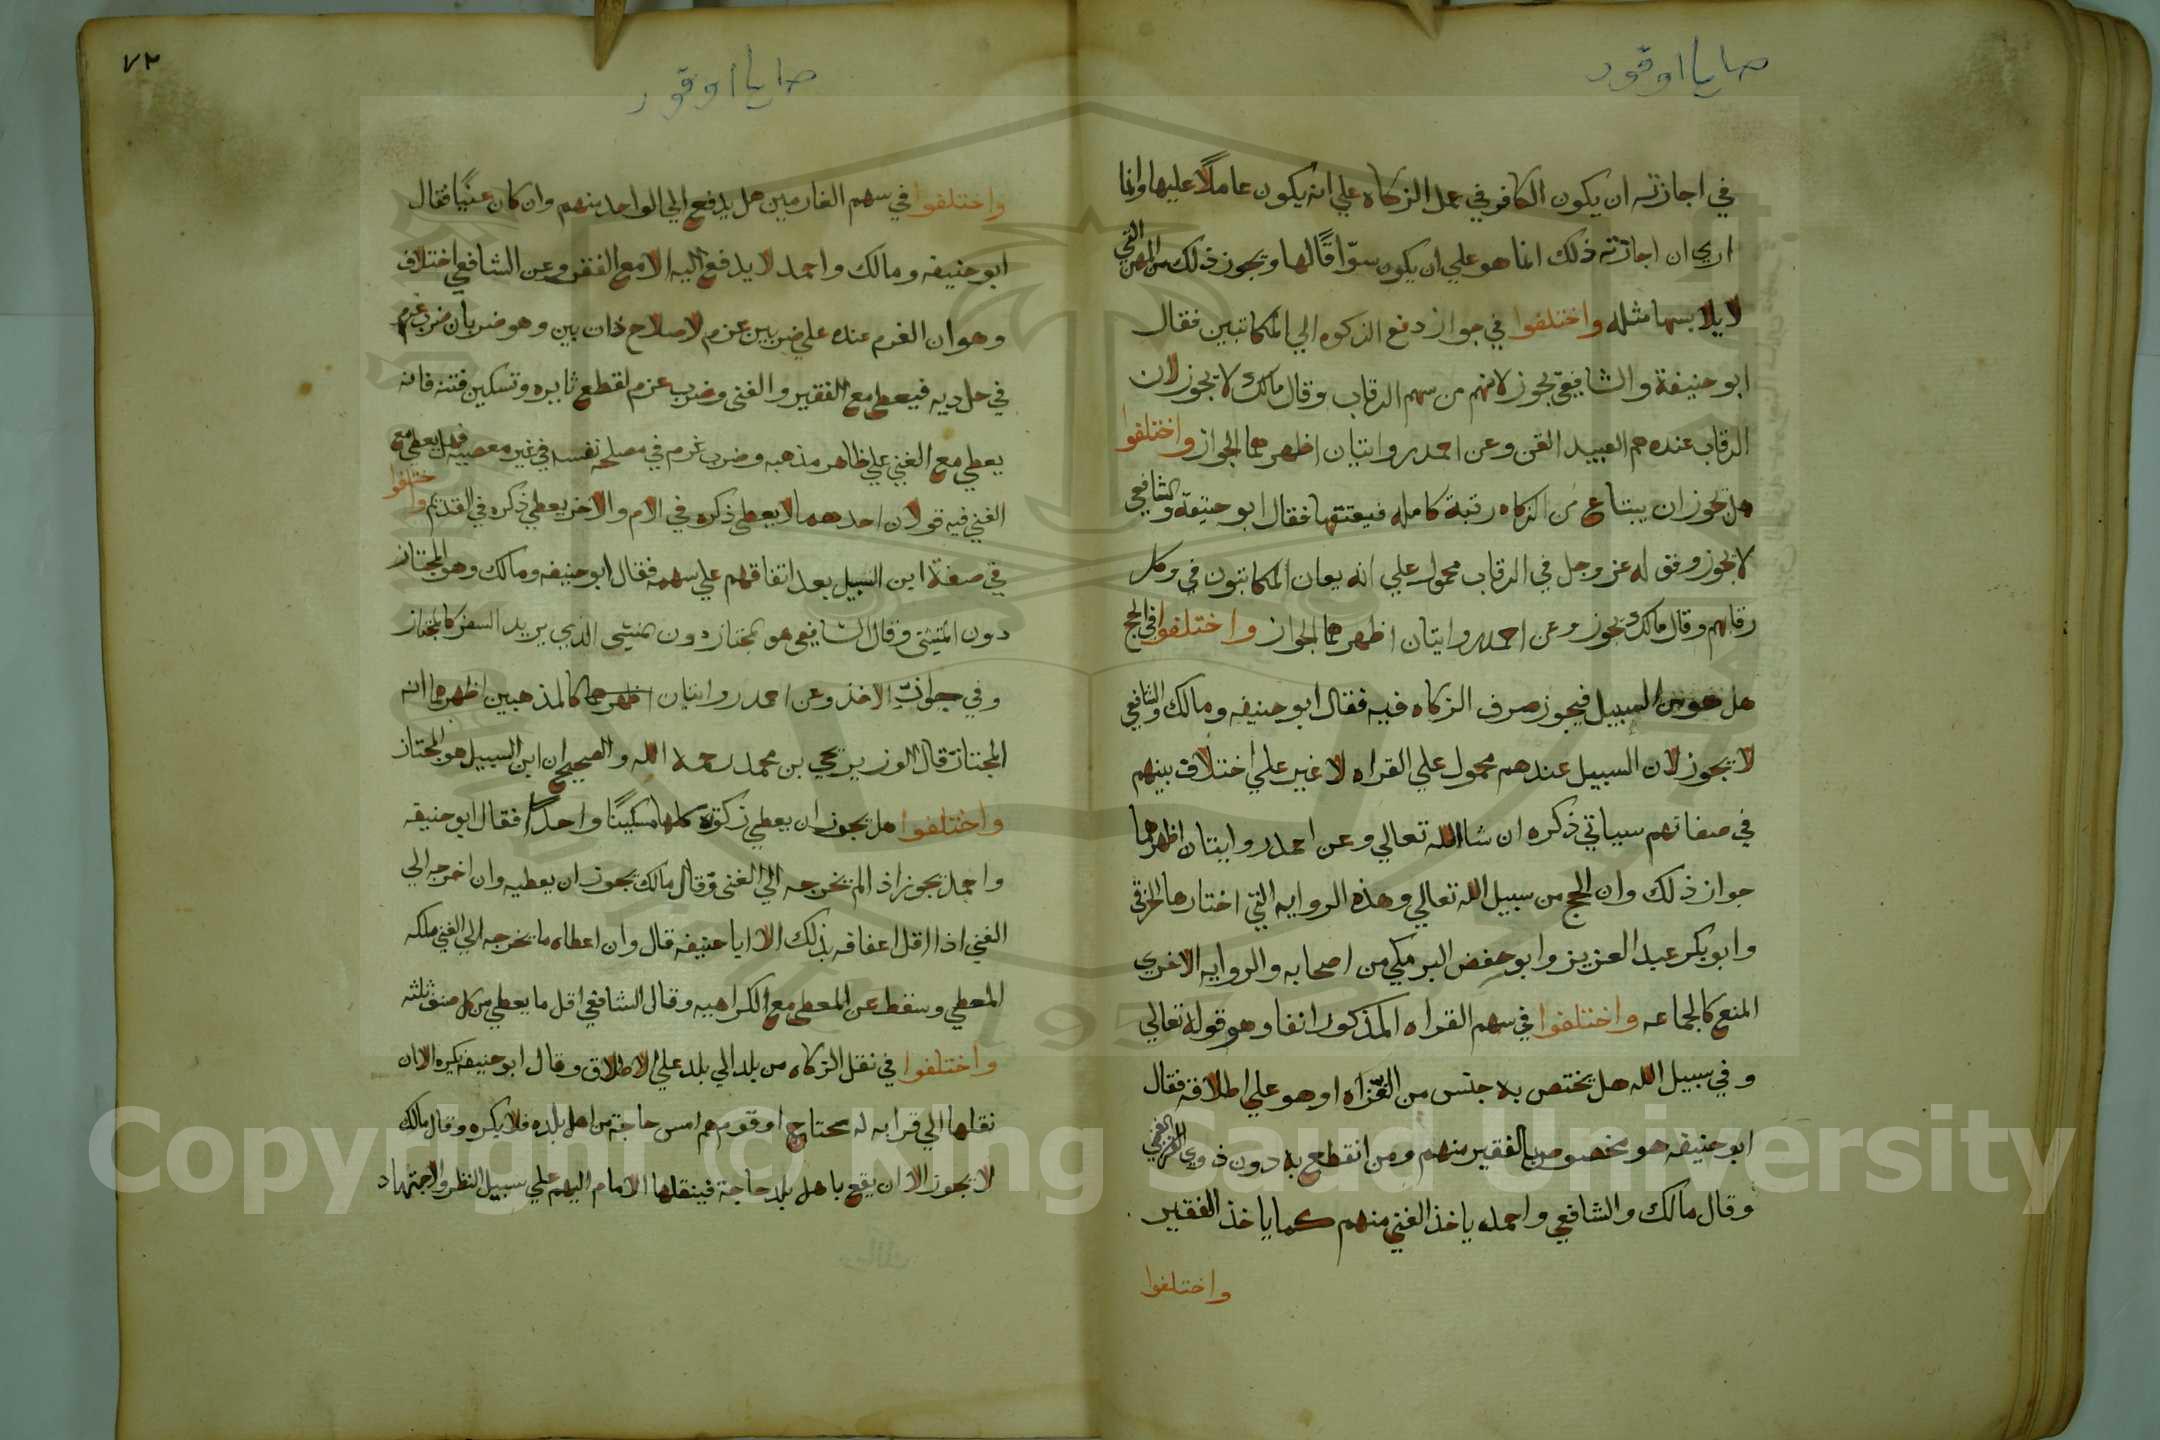 صايا اوقود
في اجازته ان يكون الكافر في عمل الزكاه علي انه يكون عاملًا عليها وانما
اري ان اجازته ذلك انما هو علي ان يكون سوّاقًا لها ويجوز ذلك من المهن التي
لا يلابسها مثله واختلفوا في جواز دفع الزكوه الي المكاتبين فقال
ابو حنيفة والشافعي يجوز لانهم من سهم الرقاب وقال مالك لا يجوز لان
الرقاب عنده هم العبيد القن وعن احمد روايتان اظهرهما الجواز واختلفوا
هل يجوز ان يبتاع من الزكاه رقبة كامله فيعتقها فقال ابو حنيفة والشافعي
لا يجوز وقوله عز وجل في الرقاب محمول علي انه يعان المكاتبون في فك
رقابهم وقال مالك يجوز وعن احمد روايتان اظهرهما الجواز واختلفوا في الحج
هل هو من السبيل فيجوز صرف الزكاه فيه فقال ابو حنيفه ومالك والشافعي
لا يجوز لان السبيل عندهم محمول علي الغزاه لا غير علي اختلاف بينهم
في صفاتهم سياتي ذكره ان شاالله تعالي وعن احمد روايتان اظهرهما
جواز ذلك وان الحج من سبيل الله تعالي وهذه الروايه التي اختارها الخرقي
وابو بكر عبد العزيز وابو حفص البرمكي من اصحابه والروايه الاخري
المنع كالجماعه واختلفوا في سهم الغزاه المذكور انفا وهو قوله تعالي
وفي سبيل الله هل يختص به جنس من الغزاه او هو علي اطلاقه فقال
ابو حنيفه هو مخصوص بالفقير منهم ومن انقطع به دون ذوي الغني
وقال مالك والشافعي واحمد ياخذ الغني منهم كما ياخذ الفقير
واختلفوا
٧٢
صايا اوقود
واختلفوا في سهم الغارمين هل يدفع الي الواحد منهم وان كان غنيًا فقال
ابو حنيفه ومالك واحمد لا يدفع اليه الا مع الفقر وعن الشافعي اختلاف
وهو ان الغرم عنده علي ضربين غرم لاصلاح ذات بين وهو ضربان ضرب غرم
في حل ديه فيعطي مع الفقير والغني وضرب غرم لقطع ثايره وتسكين فتنه فانه
يعطي مع الغني علي ظاهر مذهبه وضرب غرم في مصلحه نفسه في غير معصيه فهل يعطي مع
الغني فيه قولان احدهما لا يعطي ذكره في الام والاخر يعطي ذكره في القديم واختلفوا
في صفة ابن السبيل بعد اتفاقهم علي سهمه فقال ابو حنيفه ومالك وهو المجتاز
دون المنشئ وقال الشافعي هو المجتاز دون المنشي الذي يريد السفر كالمجتاز
وفي جواز الاخذ وعن احمد روايتان اظهرهما كالمذهبين اظهرهما انه
المجتاز قال الوزير يحي بن محمد رحمه الله والصحيح ان ابن السبيل هو المجتاز
واختلفوا هل يجوز ان يعطي زكوته كلها مسكينًا واحدًا فقال ابو حنيفه
واحمد يجوز اذ الم يخرجه الي الغني وقال مالك يجوز ان يعطيه وان اخرجه الي
الغني اذا اقل اعفافه بذلك الا ابا حنيفه قال وان اعطاه ما يخرجه الي الغني ملكه
المعطي وسقط عن المعطي مع الكراهيه وقال الشافعي اقل ما يعطي من كل صنف ثلثه
واختلفوا في نقل الزكاه من بلد الي بلد علي الاطلاق وقال ابو حنيفه يكره الا ان
نقلها الي قرابه له محتاج او قوم هم امس حاجة من اهل بلده فلا يكره وقال مالك
لا يجوز الا ان يقع باهل بلد حاجة فينقلها الامام اليهم علي سبيل النظر والاجتهاد
Copyright © King Saud University